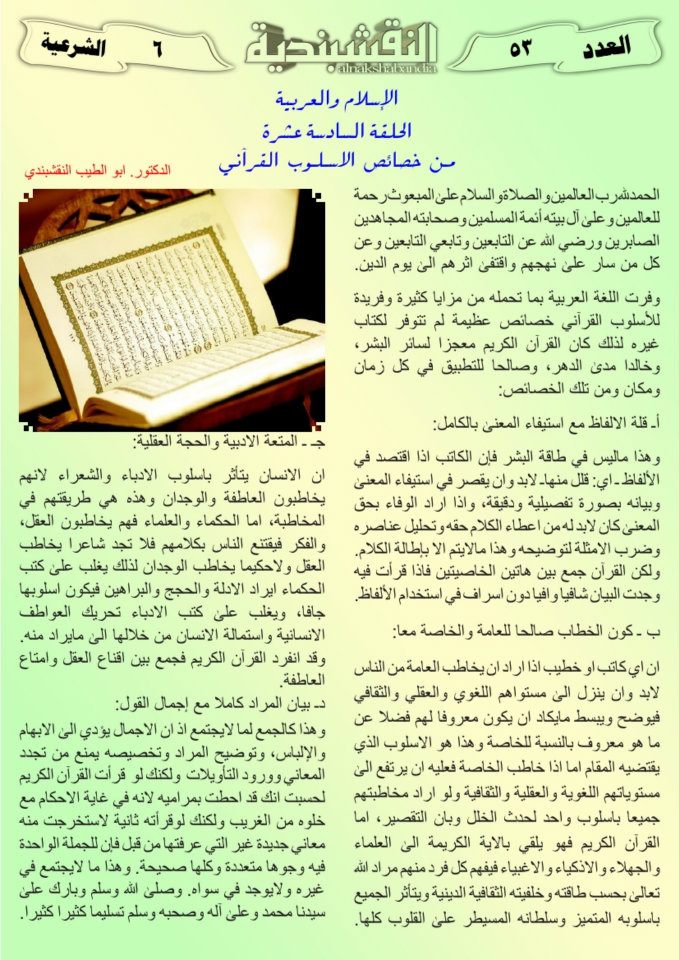 العدد
٥٣
النقشبندية
alnakshabandia
٦
الشرعية
الإسلام والعربية
الحلقة السادسة عشرة
من خصائص الاسلوب القرآني
الدكتور. ابو الطيب النقشبندي
الحمدلله رب العالمين والصلاة والسلام على المبعوث رحمة
للعالمين وعلى آل بيته أئمة المسلمين وصحابته المجاهدين
الصابرين ورضي الله عن التابعين وتابعي التابعين وعن
كل من سار على نهجهم واقتفى اثرهم الى يوم الدين.
وفرت اللغة العربية بما تحمله من مزايا كثيرة وفريدة
للأسلوب القرآني خصائص عظيمة لم تتوفر لكتاب
غيره لذلك كان القرآن الكريم معجزا لسائر البشر،
وخالدا مدى الدهر، وصالحا للتطبيق في كل زمان
ومكان ومن تلك الخصائص:
أـ قلة الالفاظ مع استيفاء المعنى بالكامل:
وهذا ماليس في طاقة البشر فإن الكاتب اذا اقتصد في
الألفاظ ـ اي: قلل منهاـ لابد وان يقصر في استيفاء المعنى
وبيانه بصورة تفصيلية ودقيقة، واذا اراد الوفاء بحق
المعنى كان لابد له من اعطاء الكلام حقه وتحليل عناصره
وضرب الامثلة لتوضيحه وهذا مالايتم الا بإطالة الكلام.
ولكن القرآن جمع بين هاتين الخاصيتين فاذا قرأت فيه
وجدت البيان شافيا وافيا دون اسراف في استخدام الألفاظ.
ب ـ كون الخطاب صالحا للعامة والخاصة معا:
ان اي كاتب او خطيب اذا اراد ان يخاطب العامة من الناس
لابد وان ينزل الى مستواهم اللغوي والعقلي والثقافي
فيوضح ويبسط مايكاد ان يكون معروفا لهم فضلا عن
ما هو معروف بالنسبة للخاصة وهذا هو الاسلوب الذي
يقتضيه المقام اما اذا خاطب الخاصة فعليه ان يرتفع الى
مستوياتهم اللغوية والعقلية والثقافية ولو اراد مخاطبتهم
جميعا باسلوب واحد لحدث الخلل وبان التقصير، اما
القرآن الكريم فهو يلقي بالاية الكريمة الى العلماء
والجهلاء والاذكياء والاغبياء فيفهم كل فرد منهم مراد الله
تعالى بحسب طاقته وخلفيته الثقافية الدينية ويتأثر الجميع
باسلوبه المتميز وسلطانه المسيطر على القلوب كلها.
جـ ـ المتعة الادبية والحجة العقلية:
ان الانسان يتأثر باسلوب الادباء والشعراء لانهم
يخاطبون العاطفة والوجدان وهذه هي طريقتهم في
المخاطبة، اما الحكماء والعلماء فهم يخاطبون العقل،
والفكر فيقتنع الناس بكلامهم فلا تجد شاعرا يخاطب
العقل ولاحكيما يخاطب الوجدان لذلك يغلب على كتب
الحكماء ايراد الادلة والحجج والبراهين فيكون اسلوبها
جافا، ويغلب على كتب الادباء تحريك العواطف
الانسانية واستمالة الانسان من خلالها الى مايراد منه.
وقد انفرد القرآن الكريم فجمع بين اقناع العقل وامتاع
العاطفة.
دـ بيان المراد كاملا مع إجمال القول:
وهذا كالجمع لما لايجتمع اذ ان الاجمال يؤدي الى الابهام
والإلباس، وتوضيح المراد وتخصيصه يمنع من تجدد
المعاني وورود التأويلات ولكنك لو قرأت القرآن الكريم
لحسبت انك قد احطت بمراميه لانه في غاية الاحكام مع
خلوه من الغريب ولكنك لوقرأته ثانية لاستخرجت منه
معاني جديدة غير التي عرفتها من قبل فإن للجملة الواحدة
فيه وجوها متعددة وكلها صحيحة. وهذا ما لايجتمع في
غيره ولايوجد في سواه. وصلى الله وسلم وبارك على
سيدنا محمد وعلى آله وصحبه وسلم تسليما كثيرا كثيرا.